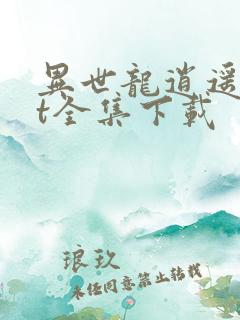 異世龍逍遥
t全集下載
琅玖
未经同意禁止转载